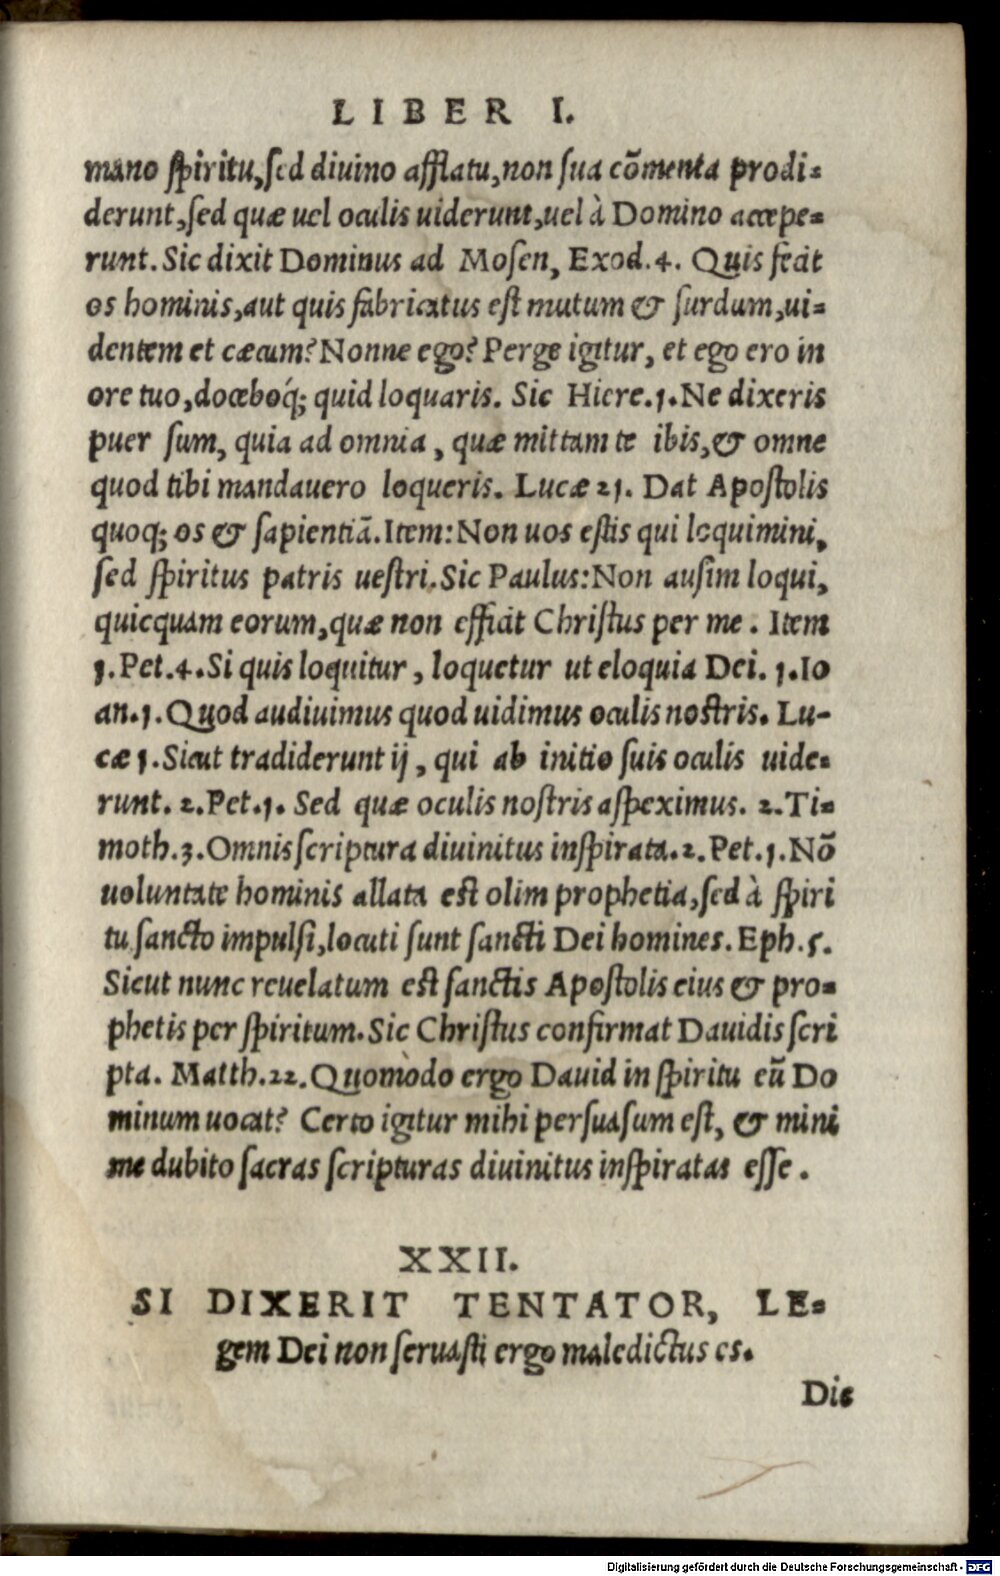 LIBER I.
mano spiritu, sed diuino afflatu, non sua cõmenta prodi-
derunt, sed quæ uel oculis uiderunt, uel à Domino accepe-
runt. Sic dixit Dominus ad Mosen, Exod. 4. Quis fecit
os hominis, aut quis fabricatus est mutum & surdum, ui-
dentem et cæcum? Nonne ego? Perge igitur, et ego ero in
ore tuo, doceboq́; quid loquaris. Sic Hiere. 1. Ne dixeris
puer sum, quia ad omnia, quæ mittam te ibis, & omne
quod tibi mandauero loqueris. Lucæ 21. Dat Apostolis
quoq; os & sapientiã. Item: Non uos estis qui loquimini,
sed spiritus patris uestri. Sic Paulus: Non ausim loqui,
quicquam eorum, quæ non efficit Christus per me. Item
1. Pet. 4. Si quis loquitur, loquetur ut eloquia Dei. 1. Io
an. 1. Quod audiuimus quod uidimus oculis nostris. Lu-
cæ 1. Sicut tradiderunt ij, qui ab initio suis oculis uide-
runt. 2. Pet. 1. Sed quæ oculis nostris aspeximus. 2. Ti-
moth. 3. Omnis scriptura diuinitus inspirata. 2. Pet. 1. Nõ
uoluntate hominis allata est olim prophetia, sed à spiri
tu sancto impulsi, locuti sunt sancti Dei homines. Eph. 5.
Sicut nunc reuelatum est sanctis Apostolis eius & pro-
phetis per spiritum. Sic Christus confirmat Dauidis scri
pta. Matth. 22. Quomòdo ergo Dauid in spiritu eũ Do
minum uocat? Certo igitur mihi persuasum est, & mini
me dubito sacras scripturas diuinitus inspiratas esse.
XXII.
SI DIXERIT TENTATOR, LE-
gem Dei non seruasti ergo maledictus es.
Dic
Digitalisierung gefördert durch die Deutsche Forschungsgemeinschaft - DFG